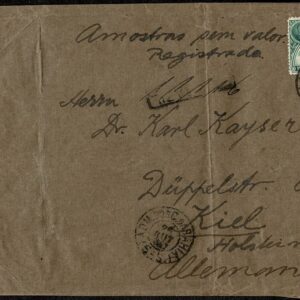 Amostras sem valor.
Registrada
Herrn
Dr. Karl Kayser
Düppelstr.
Kiel
Holstein
Allemanh